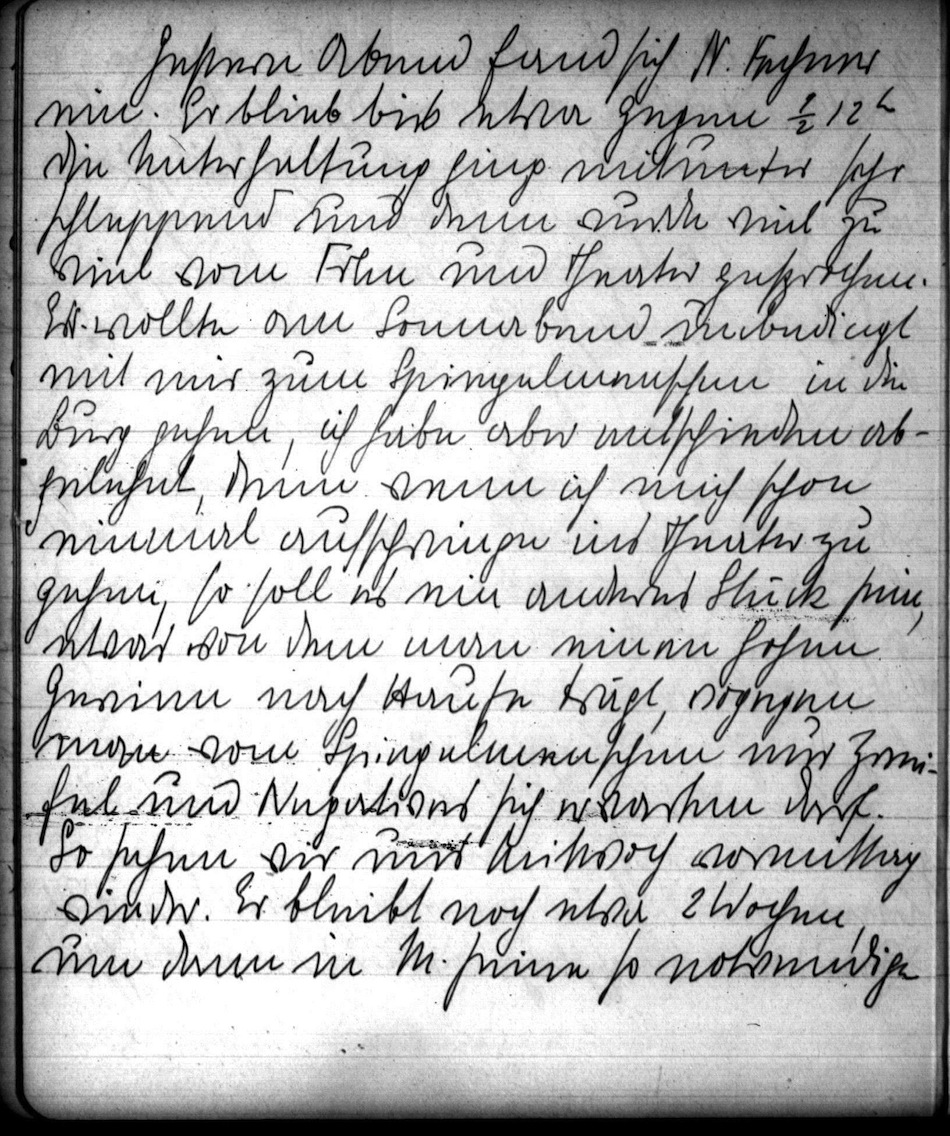 Gestern Abend fand sich N. Fechner
ein. Er blieb bis etwa gegen ½ 12 h
die Unterhaltung ging mitunter sehr
schleppend und dann wurde viel zu
viel vom Film und Theater gesprochen.
Er wollte am Sonnabend unbedingt
mit mir zum Spiegelmenschen in die
Burg gehen, ich habe aber entschieden ab-
gelehnt, denn wenn ich mich schon
einmal aufschwinge ins Theater zu
gehen, so soll es ein anderes Stück sein,
etwas von dem man einen hohen
Gewinn nach Hause trägt, wogegen
man vom Spiegelmenschen nur Zwei-
fel und Negatives sich erwarten darf.
So sehen wir uns Mittwoch vormittag
wieder. Er bleibt noch etwa 2 Wochen,
um dann in M. seine so notwendige